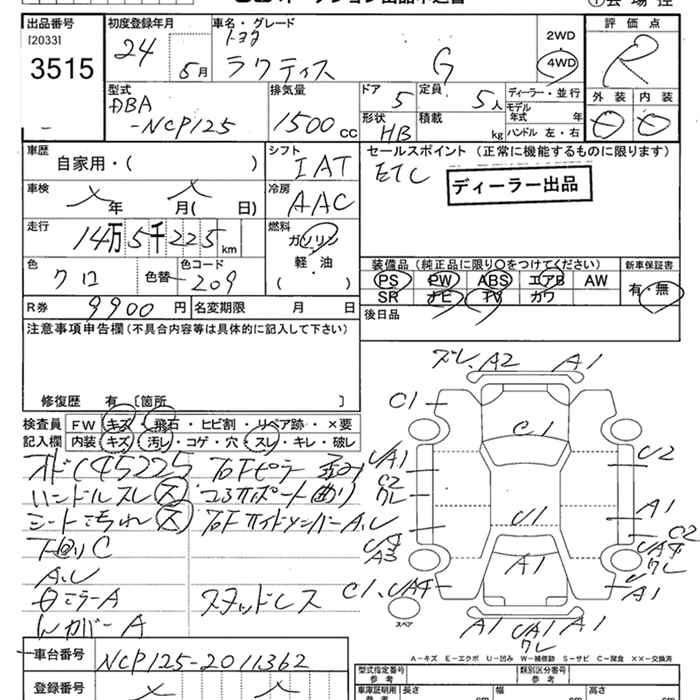 出品番号
[2033]
3515
初度登録年月
24 6月
車名・グレード
トヨタ
ラクティス G
2WD
4WD
評価点
R
外装 内装
型式
DBA
-NCP125
排気量
1500 cc
ドア 5
定員 5人
形状 HB
積載 kg
ディーラー・並行
モデル
年式 年
ハンドル 左・右
車歴
自家用・( )
シフト
IAT
セールスポイント (正常に機能するものに限ります)
ETC
ディーラー出品
車検
年 月( 日)
冷房
AAC
走行
14万5千225km
燃料
ガソリン
軽・油
( )
色
クロ
色替
色コード
209
装備品(純正品に限り○をつけてください)
新車保証書
PS PW ABS エアB AW
SR ナビ TV カワ
有・無
R券 9900円
名変期限 月 日
後日品
注意事項申告欄(不具合内容等は具体的に記入して下さい)
修復歴 有 〔箇所 〕
検査員
記入欄
FW キズ・飛石・ヒビ割・リペア跡・×要
内装 キズ・汚レ・コゲ・穴・スレ・キレ・破レ
ハンドルスレ
シート汚れ
下回りC
スタッドレス
車台番号 NCP125-2011362
登録番号
ズレ、A2 A1
C1
C1
UA1
C2
U2
A1
U1
C2
UA4
A3
A1
C1、UA4
A1
スペア
A1
UA1
A1
A-キズ E-エクボ U-凹み W-補修跡 S-サビ C-腐食 ××-交換済
型式指定番号
参考
類別区分番号
参考
車庫証明用
参考
長さ cm
幅 cm
高さ cm